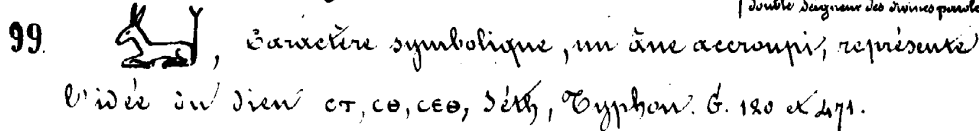 double Seigneur des divines parole
99. , Caractère symbolique, un âne accroupi, représente
l'idée du Dieu ⲥⲧ, ⲥⲑ, ⲥⲉⲑ, Séth, Typhon. G. 120 et 471.